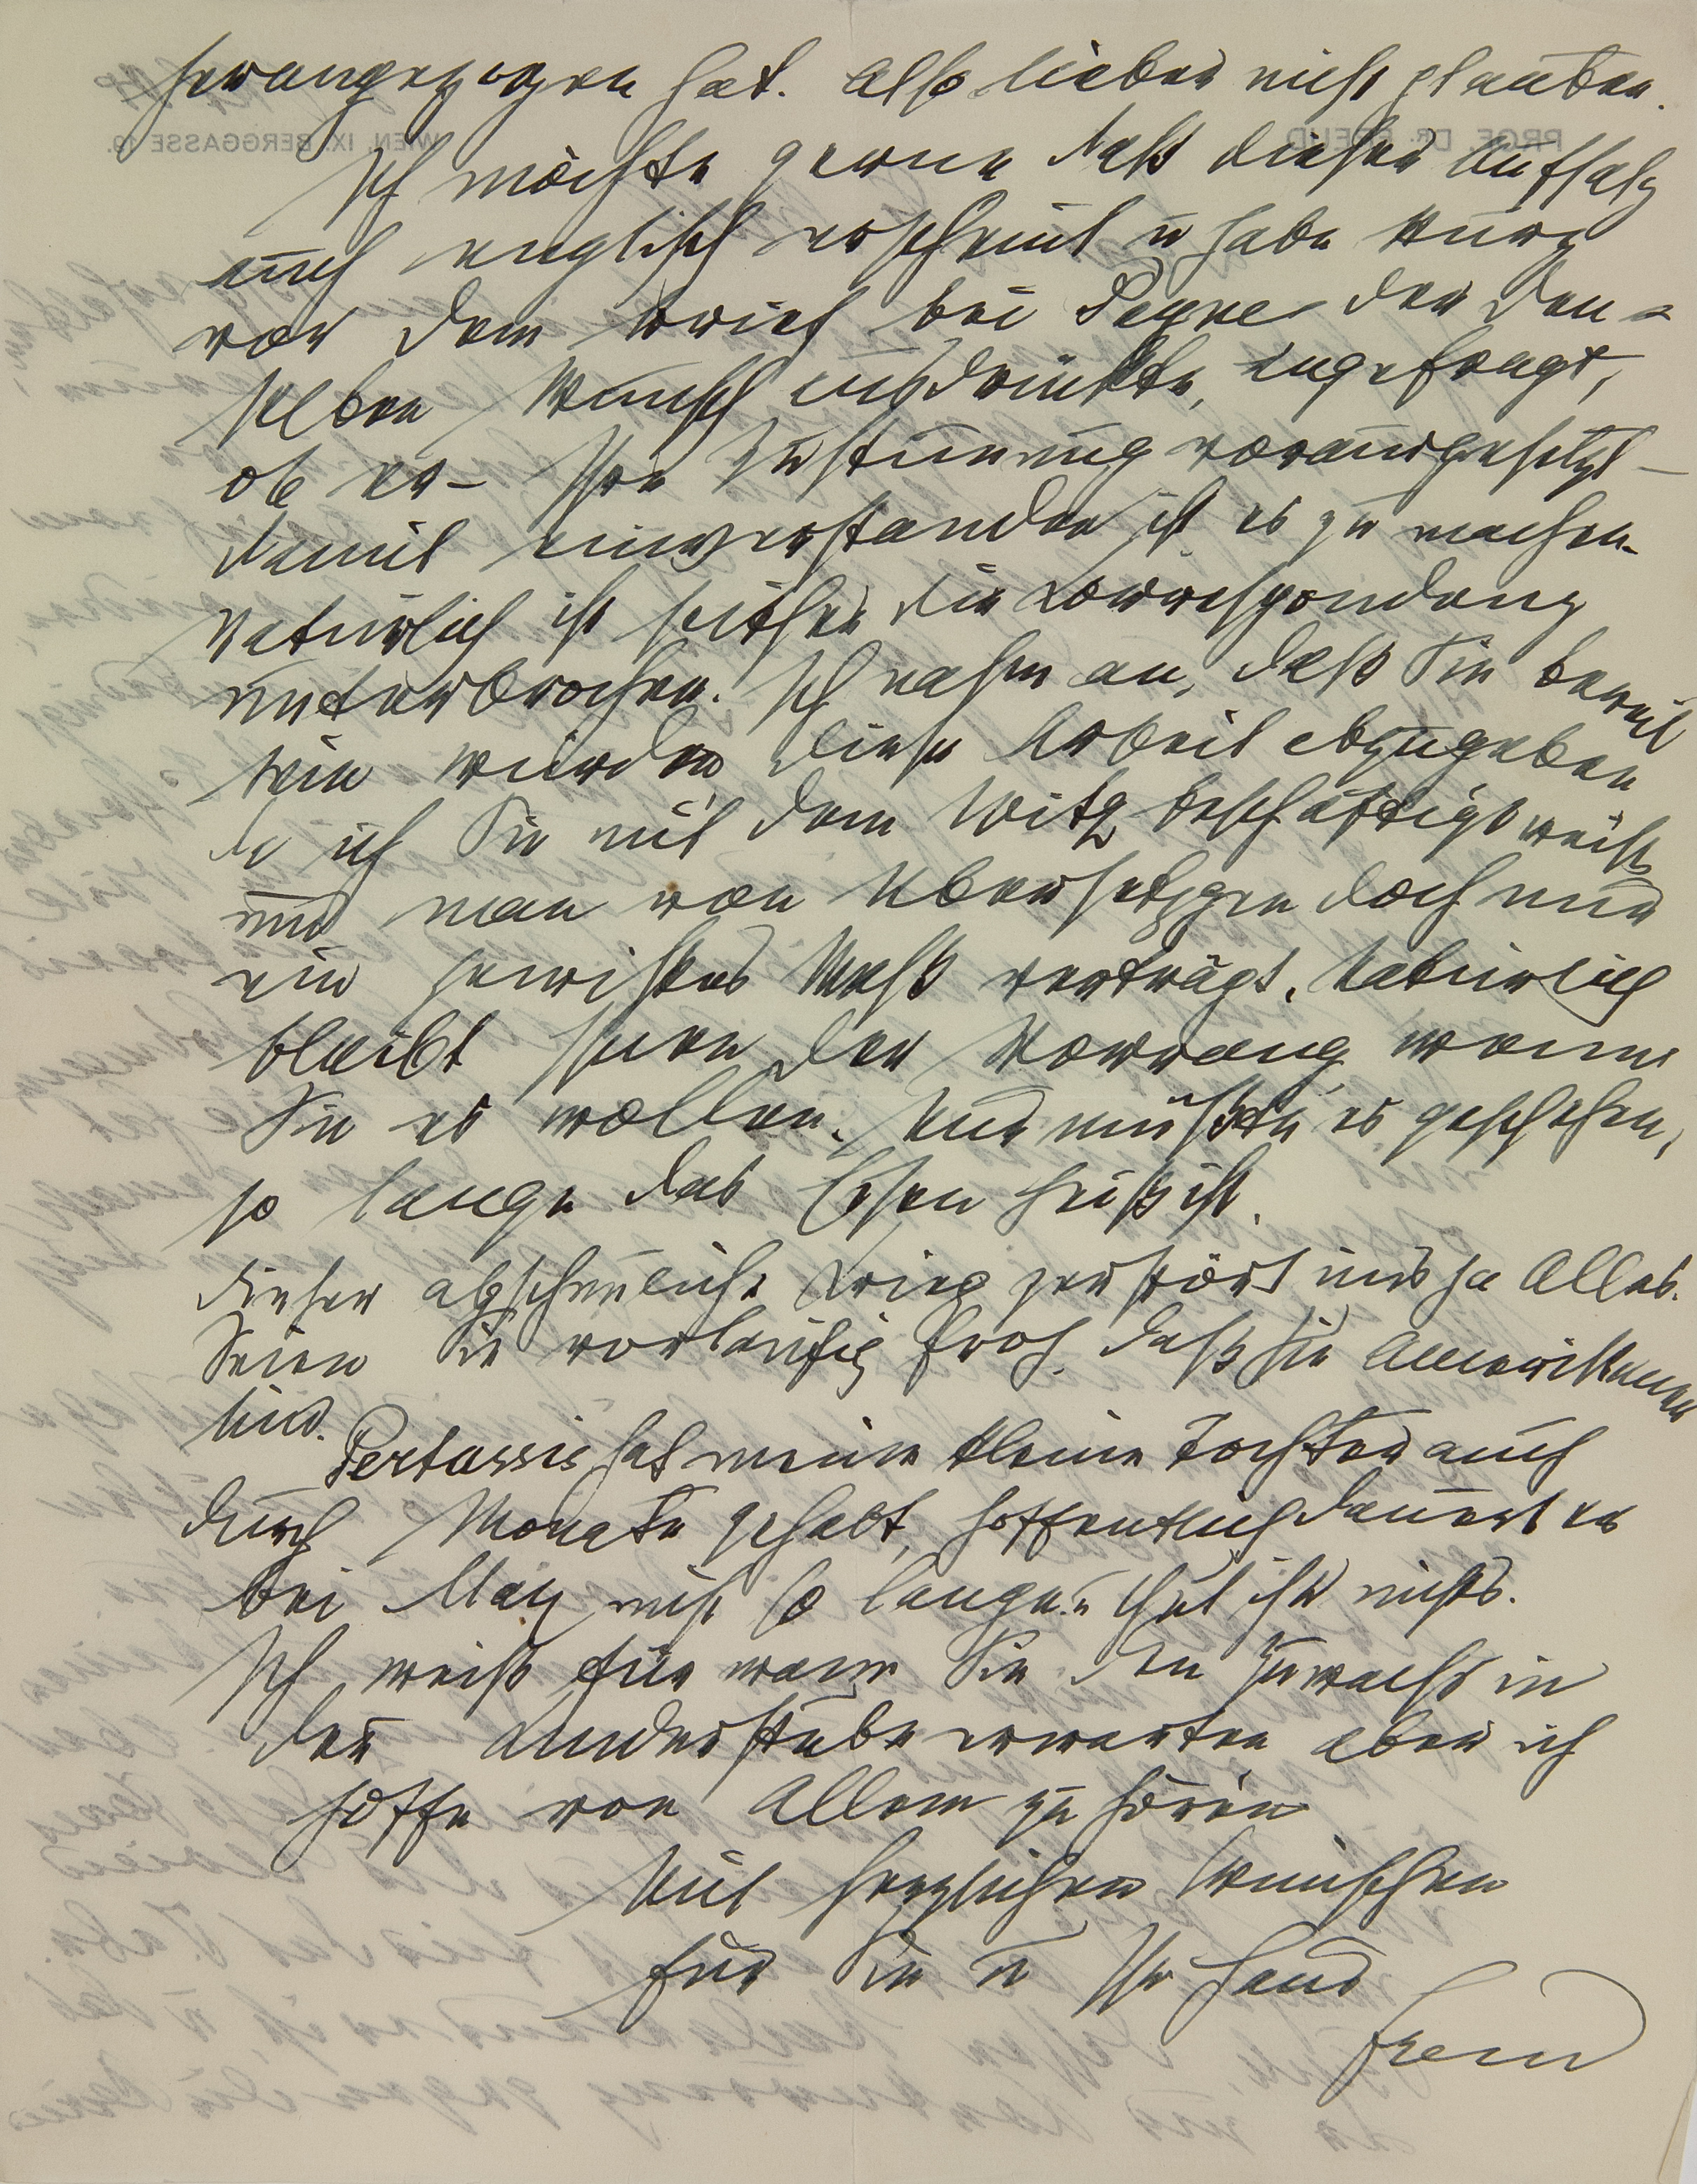 herangezogen hat. Also lieber nicht glauben.
PROF. DR. FREUD WIEN, IX. BERGGASSE 19.
Ich möchte gerne daß dieser Aufsatz
auch englisch erscheint u habe kurz
vor dem Krieg bei Payne der den-
selben Wunsch ausdrückte, angefragt,
ob er – Ihre Zustimmung vorausgesetzt –
damit einverstanden ist es zu machen.
Natürlich ist seither die Korrespondenz
unterbrochen. Ich nahm an, daß Sie bereit
sein würden diese Arbeit abzugeben
da ich Sie mit dem Witz beschäftigt weiß
und man von Übersetzgen doch nur
ein gewisses Maß verträgt. Natürlich
bleibt Ihnen der Vorrang wenn
Sie es wollen. Nur müßte es geschehen,
so lange das Eisen heiß ist.
Dieser abscheuliche Krieg zerstört uns ja Alles.
Seien Sie vorläufig froh, daß Sie Amerikaner
sind.
Pertussis hat meine kleine Tochter auch
durch Monate gehabt, hoffentlich dauert es
bei May nicht so lange u thut ihr nichts.
Ich weiß für wann Sie den Zuwachs in
der Kinderstube erwarten aber ich
hoffe von Allem zu hören
Mit herzlichen Wünschen
für Sie u Ihr Haus
Freud